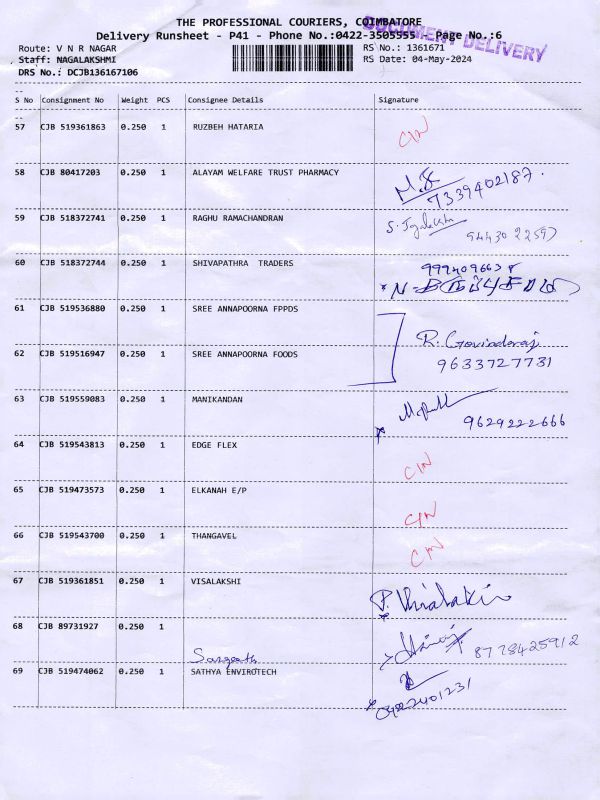 THE PROFESSIONAL COURIERS, COIMBATORE
Delivery Runsheet - P41 - Phone No.:0422-3505555 Page No.:6
DOCUMENT DELIVERY
Route: V N R NAGAR RS No.: 1361671
Staff: NAGALAKSHMI RS Date: 04-May-2024
DRS No.: DCJB136167106
S No Consignment No Weight PCS Consignee Details Signature
57 CJB 519361863 0.250 1 RUZBEH HATARIA CIN
58 CJB 80417203 0.250 1 ALAYAM WELFARE TRUST PHARMACY 7339402187.
59 CJB 518372741 0.250 1 RAGHU RAMACHANDRAN
60 CJB 518372744 0.250 1 SHIVAPATHRA TRADERS
61 CJB 519536880 0.250 1 SREE ANNAPOORNA FPPDS
R. Govindaraj
62 CJB 519516947 0.250 1 SREE ANNAPOORNA FOODS 9633727731
63 CJB 519559083 0.250 1 MANIKANDAN
9629222666
64 CJB 519543813 0.250 1 EDGE FLEX CIN
65 CJB 519473573 0.250 1 ELKANAH E/P CIN
66 CJB 519543700 0.250 1 THANGAVEL CIN
67 CJB 519361851 0.250 1 VISALAKSHI
68 CJB 89731927 0.250 1 8778425912
69 CJB 519474062 0.250 1 SATHYA ENVIROTECH